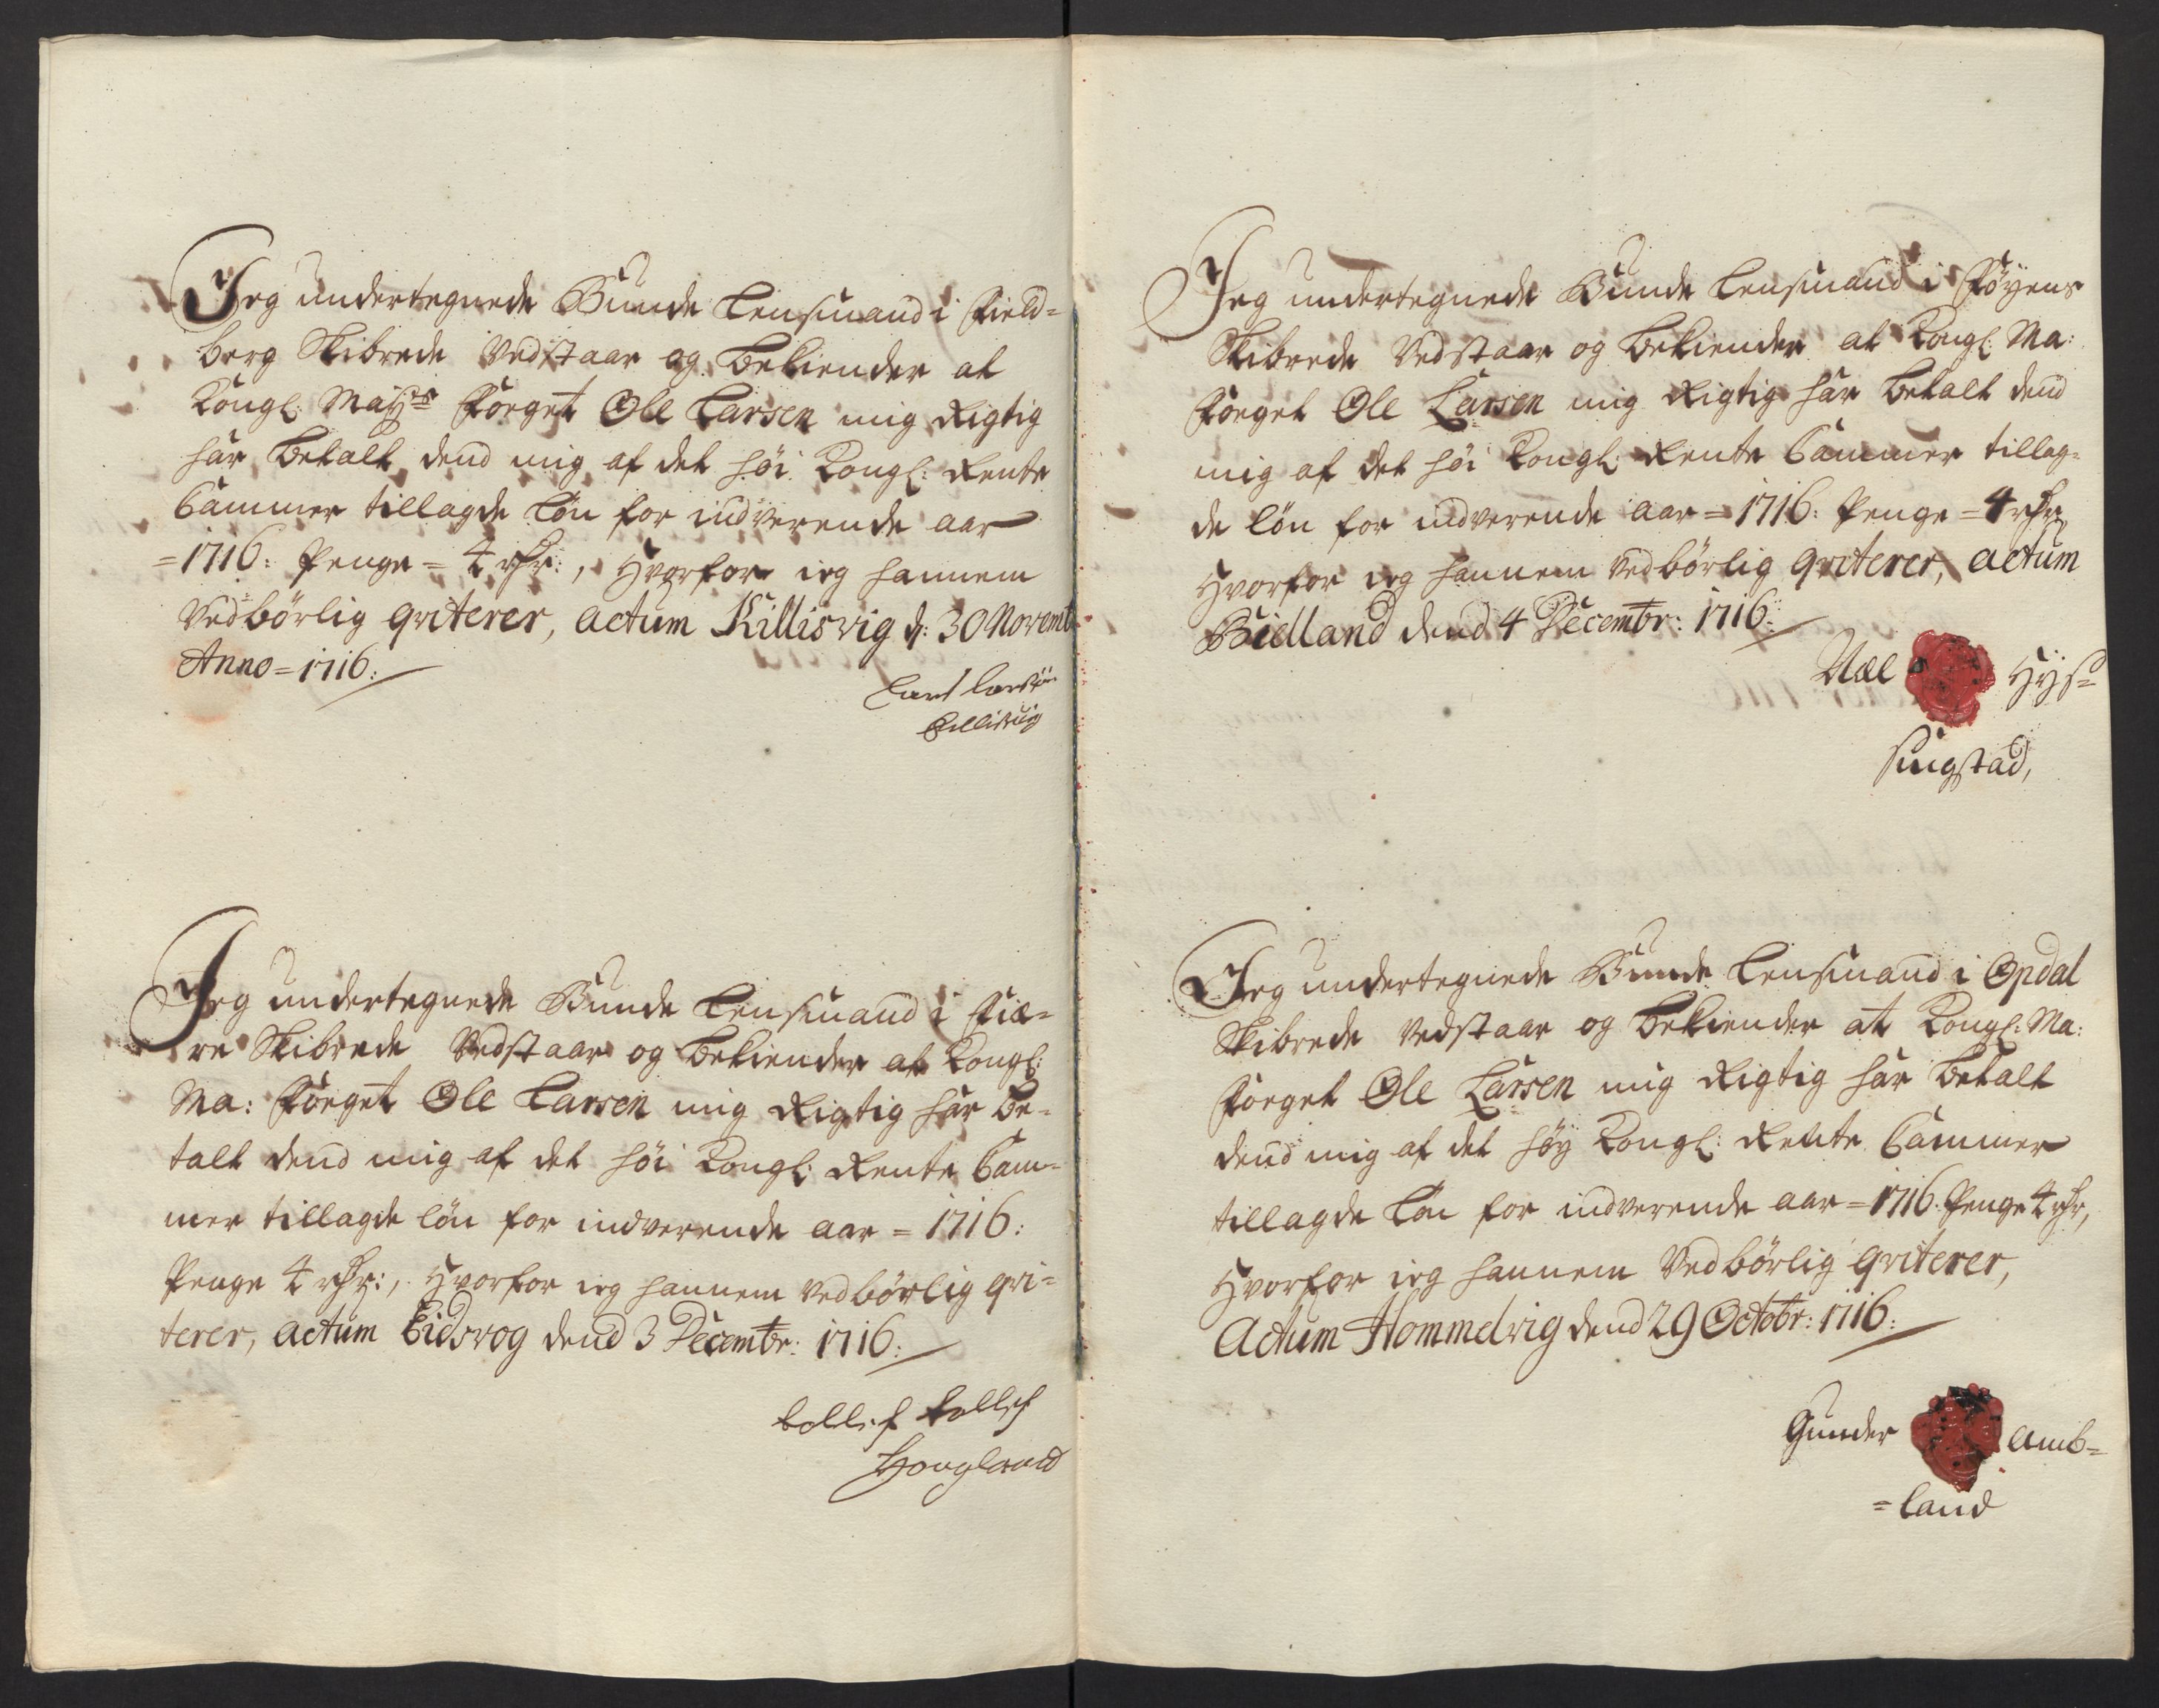 Jeg undertegnede Bunde Lensmand i Field-
berg Skibrede Vedstaar og bekiender at
Kongl: Mayts Foeget Ole Larsen mig Rigtig
har betalt dend mig af det höi Kongl: Rente
Cammer tillagde Lön for indverende aar
=1716: Penge = 4 rdr:, Hvorfor ieg hannem
Vedbörlig qviterer, actum Killisvig d: 30 Novemb
Anno = 1716:
Lars Larsön
Killisvig
Jeg undertegnede Bunde Lensmand i Fiæ-
re Skibrede Vedstaar og bekiender at Kongl:
Ma: Foeget Ole Larsen mig Rigtig har be-
talt dend mig af det höi Kongl: Rente Cam-
mer tillagde lön for indverende aar = 1716:
Penge 4 rdr:, Hvorfor ieg hannem vedbörlig qvi-
terer, actum Eidsvog dend 3 Decembr: 1716:
tollef tollefs
Hougland
Jeg undertegnede Bunde Lensmand i Föyens
Skibrede Vedstaar og bekiender at Kongl: Ma:
Foeget Ole Larsen mig Rigtig har betalt dend
mig af det höi Kongl: Rente Cammer tillag-
de lön for indverende aar = 1716: Penge = 4 rdr
Hvorfor ieg hannem Vedbörlig qviterer, actum
Bielland dend 4 Decembr: 1716:
Siugstad,
Jeg undertegnede Bunde Lensmand i Opdal
Skibrede Vedstaar og bekiender at Kongl: Ma:
Foeget Ole Larsen mig Rigtig har betalt
dend mig af det höy Kongl: Rente Cammer
tillagde Lön for indverende aar = 1716: Penge 4 rdr,
Hvorfor ieg hannem Vedbörlig qviterer,
Actum Hommelvig dend 29 Octobr: 1716:
Gunder Amb-
=land